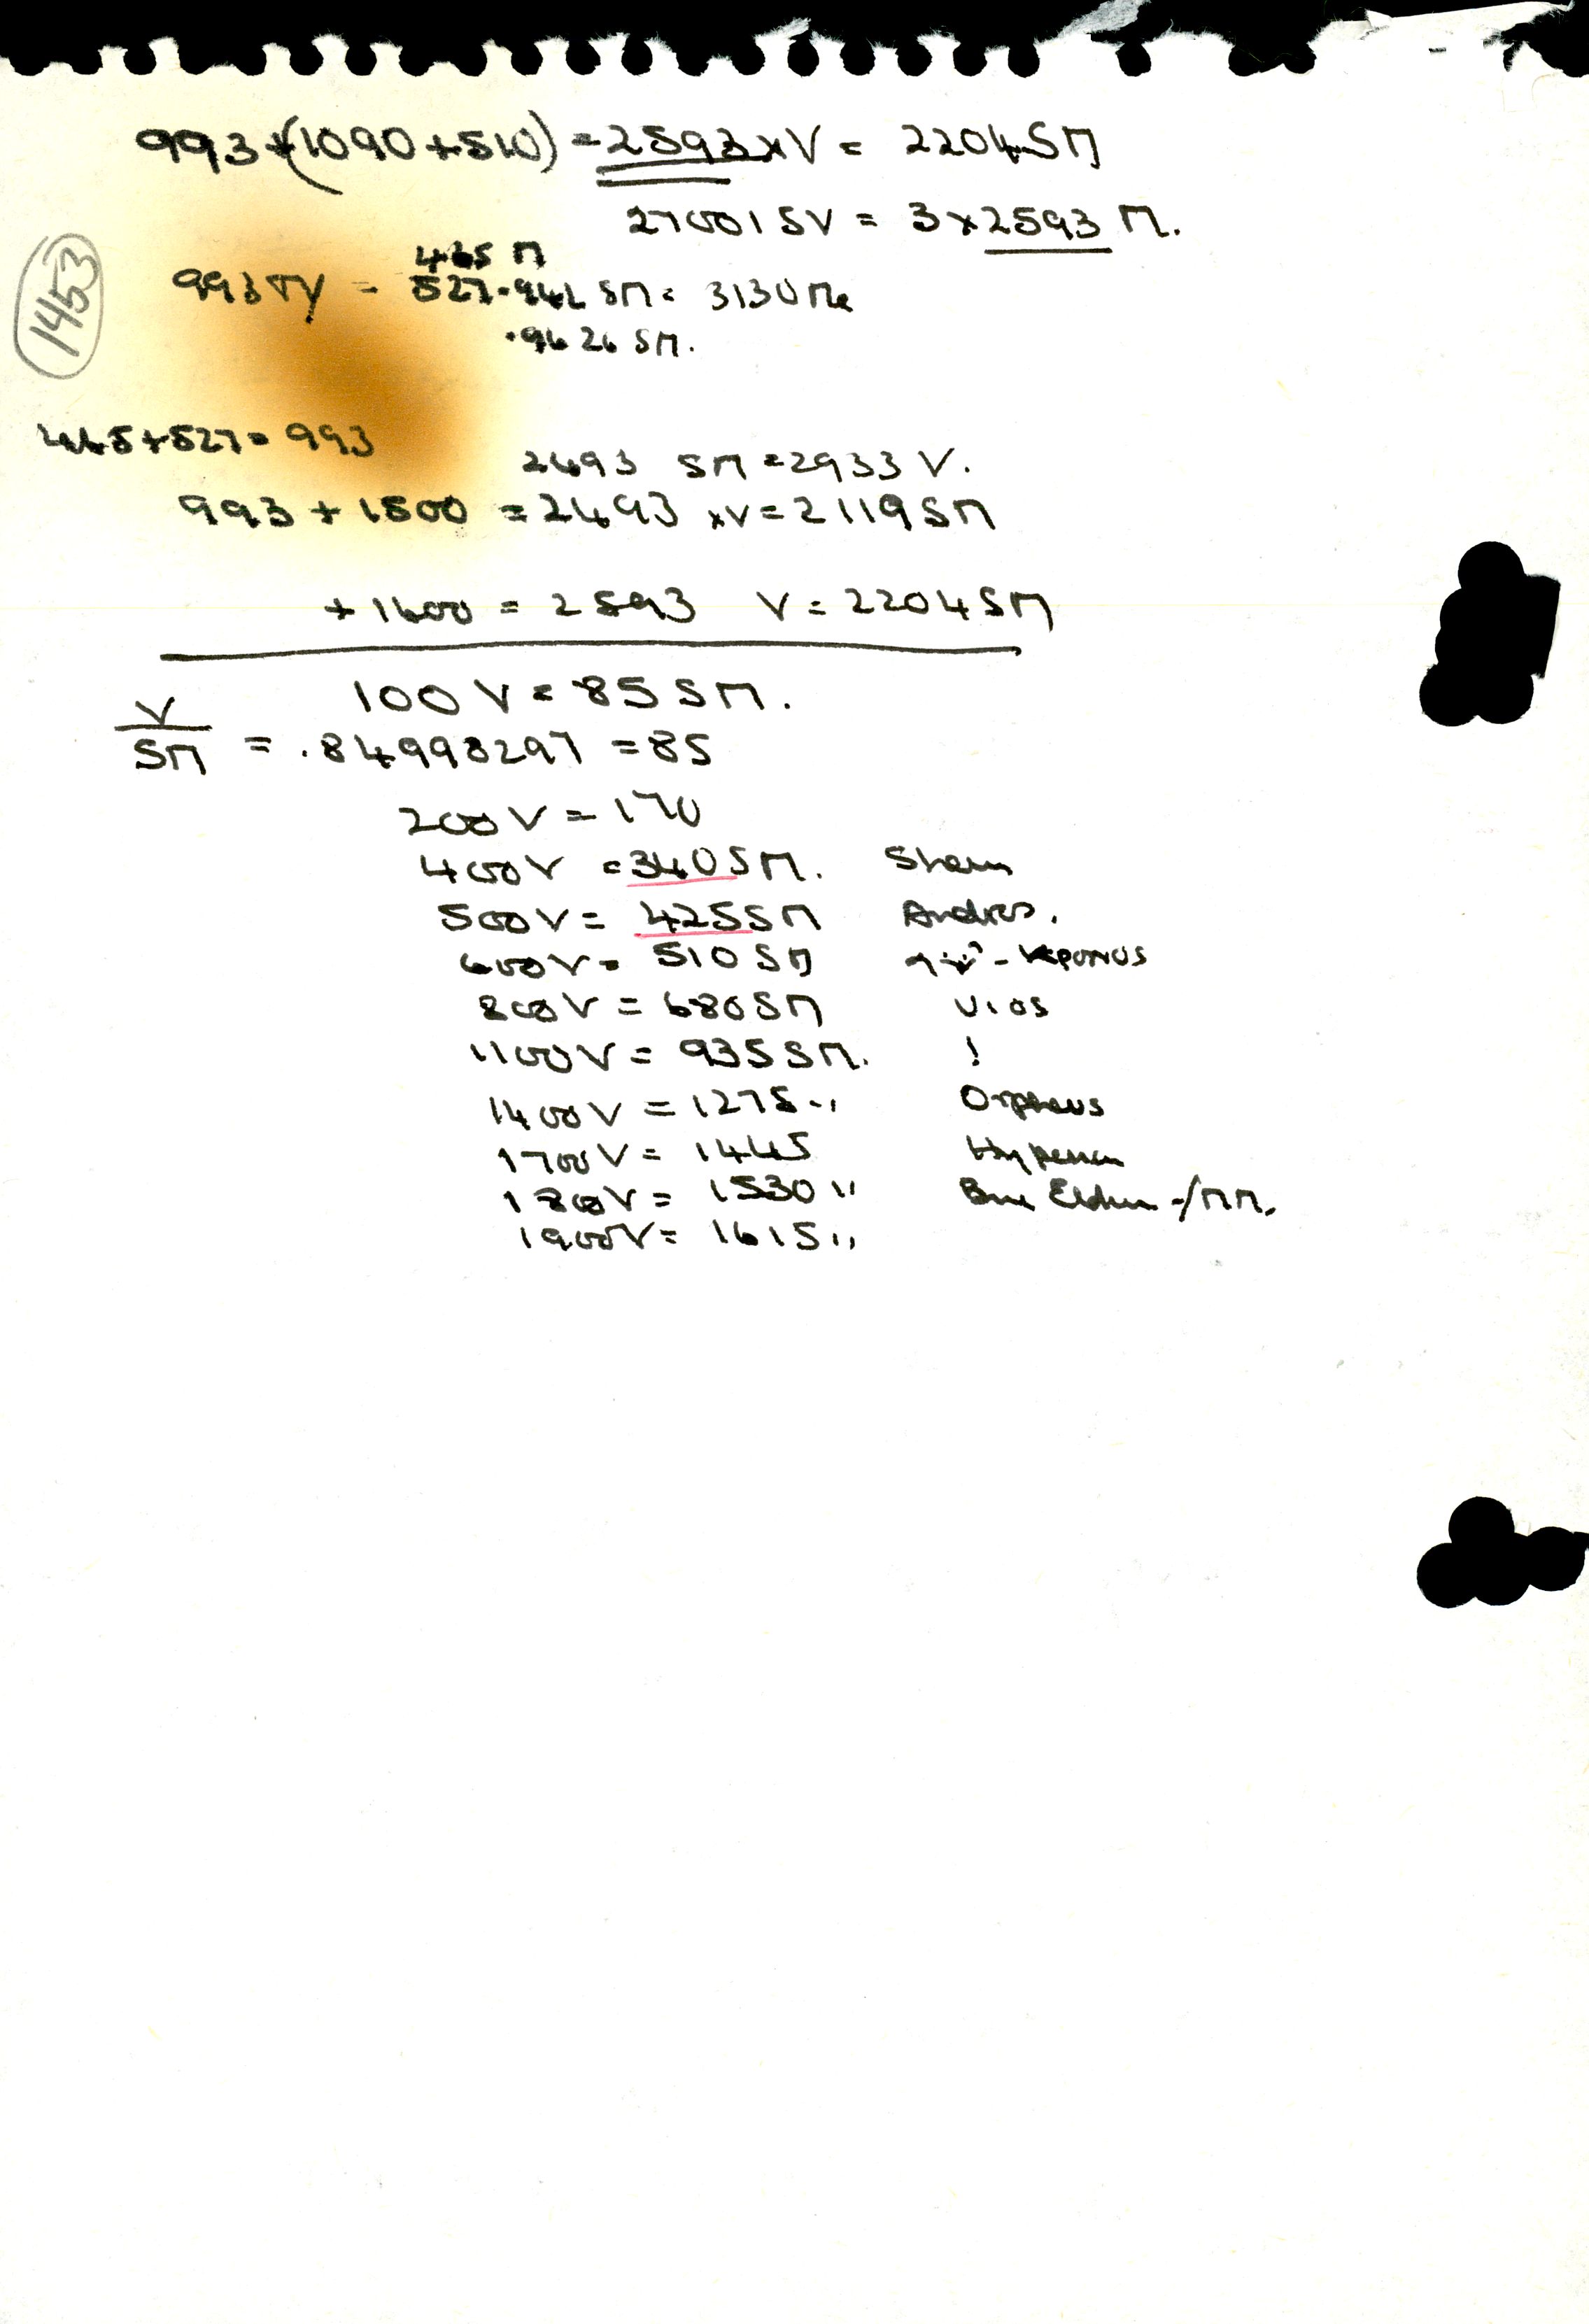 993+(1090+510) = 2593xV = 2204SΠ
27001SV = 3x2593 Π.
1453
465 Π
993 = 527. SΠ = 3130
.9626 SΠ.
465+527= 993
2493 SΠ =2933 V.
993 + 1500 = 2493 xV=2119SΠ
+1600 = 2593 V=2204SΠ
100 V = 85 SΠ.
V
SΠ = .84998297 =85
200V = 170
400V =340SΠ. Sham
500V = 425SΠ Andros.
600V= 510 SΠ
800V = 680SΠ Vios
1100V = 935SΠ. !
1400V = 1275 ,, Orpheus
1700V = 1445
1800V = 1530 ,,
1900V = 1615 ,,